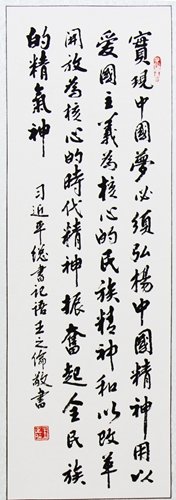 實現中國夢必須弘楊中國精神用以
愛國主義為核心的民族精神和以改革
開放為核心的時代精神振奮起全民族
的精氣神
习近平總書记语王之倫敬書